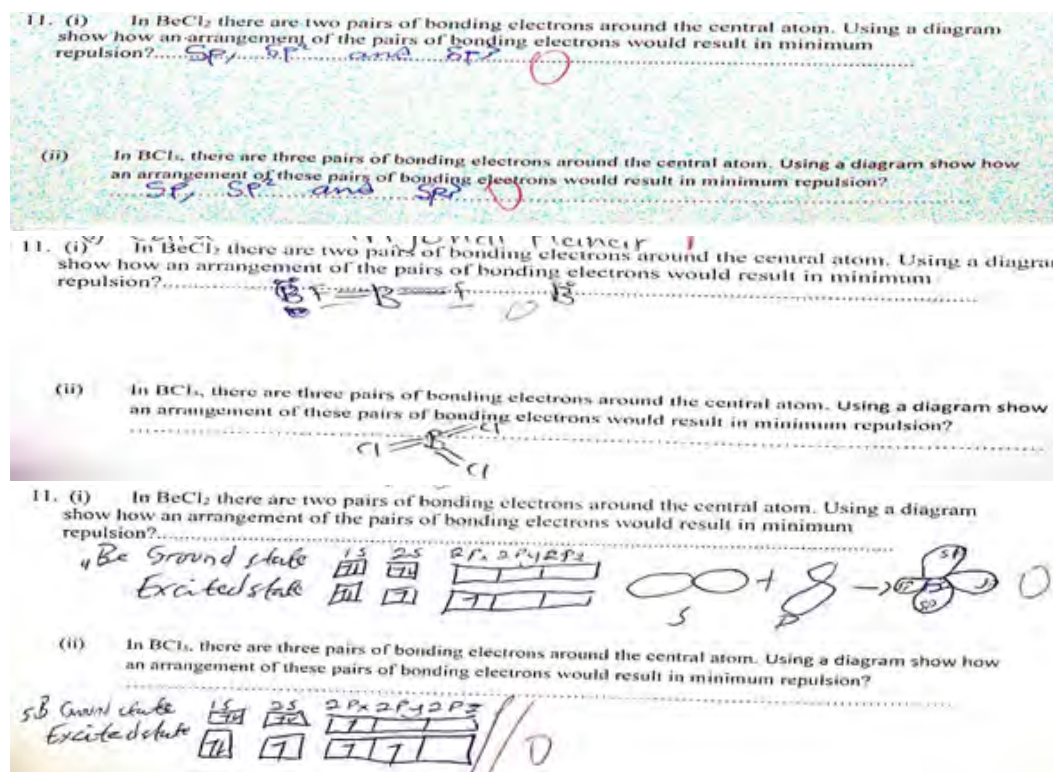 11. (i) In BeCl₂ there are two pairs of bonding electrons around the central atom. Using a diagram
show how an arrangement of the pairs of bonding electrons would result in minimum
repulsion?......SP, SP² and SP³
(ii) In BCl₃, there are three pairs of bonding electrons around the central atom. Using a diagram show how
an arrangement of these pairs of bonding electrons would result in minimum repulsion?
SP, SP² and SP³
11. (i) In BeCl₂ there are two pairs of bonding electrons around the central atom. Using a diagra
show how an arrangement of the pairs of bonding electrons would result in minimum
repulsion?......F B F B
(ii) In BCl₃, there are three pairs of bonding electrons around the central atom. Using a diagram show
an arrangement of these pairs of bonding electrons would result in minimum repulsion?
Cl B Cl
Cl
11. (i) In BeCl₂ there are two pairs of bonding electrons around the central atom. Using a diagram
show how an arrangement of the pairs of bonding electrons would result in minimum
repulsion?......
4Be Ground state 1S 2S 2Px 2Py 2Pz SP
Excited state + →
S P
(ii) In BCl₃, there are three pairs of bonding electrons around the central atom. Using a diagram show how
an arrangement of these pairs of bonding electrons would result in minimum repulsion?
5B Ground state 1S 2S 2Px 2Py 2Pz
Excited state